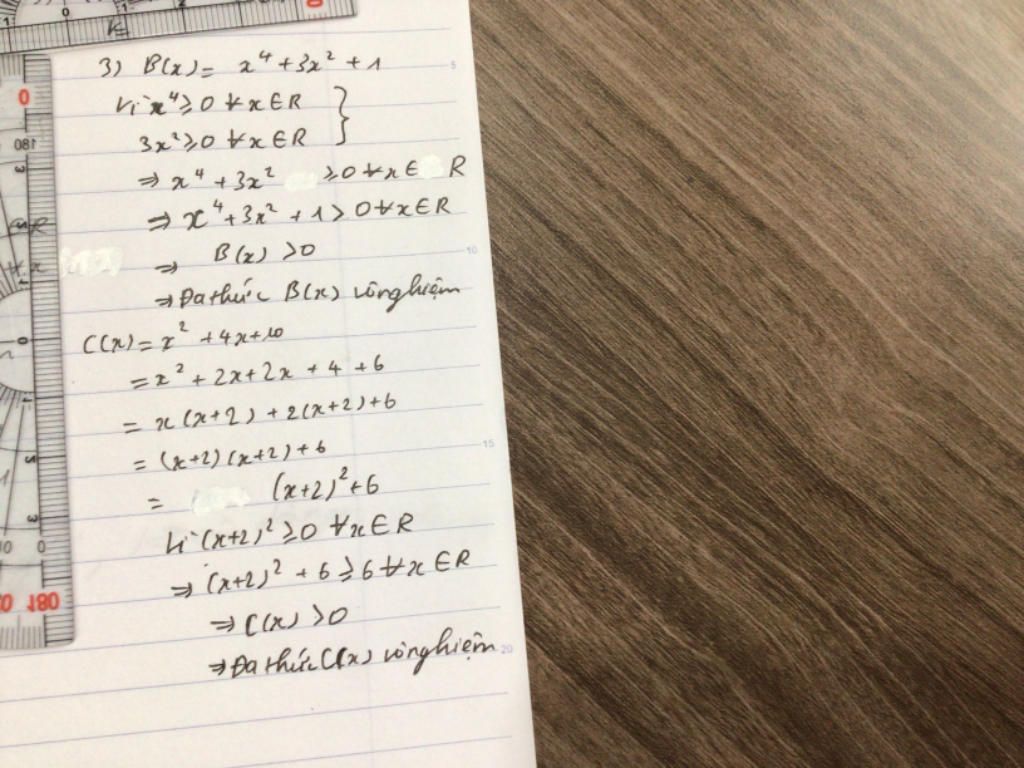 3) B(x) = x⁴ + 3x² + 1
Vì x⁴ ≥ 0 ∀x ∈ R
3x² ≥ 0 ∀x ∈ R }
⇒ x⁴ + 3x² ≥ 0 ∀x ∈ R
⇒ x⁴ + 3x² + 1 > 0 ∀x ∈ R
⇒ B(x) > 0
⇒ Đa thức B(x) vô nghiệm
C(x) = x² + 4x + 10
= x² + 2x + 2x + 4 + 6
= x(x+2) + 2(x+2) + 6
= (x+2)(x+2) + 6
= (x+2)² + 6
Vì (x+2)² ≥ 0 ∀x ∈ R
⇒ (x+2)² + 6 ≥ 6 ∀x ∈ R
⇒ C(x) > 0
⇒ Đa thức C(x) vô nghiệm
5
10
15
20
0
180
0
180